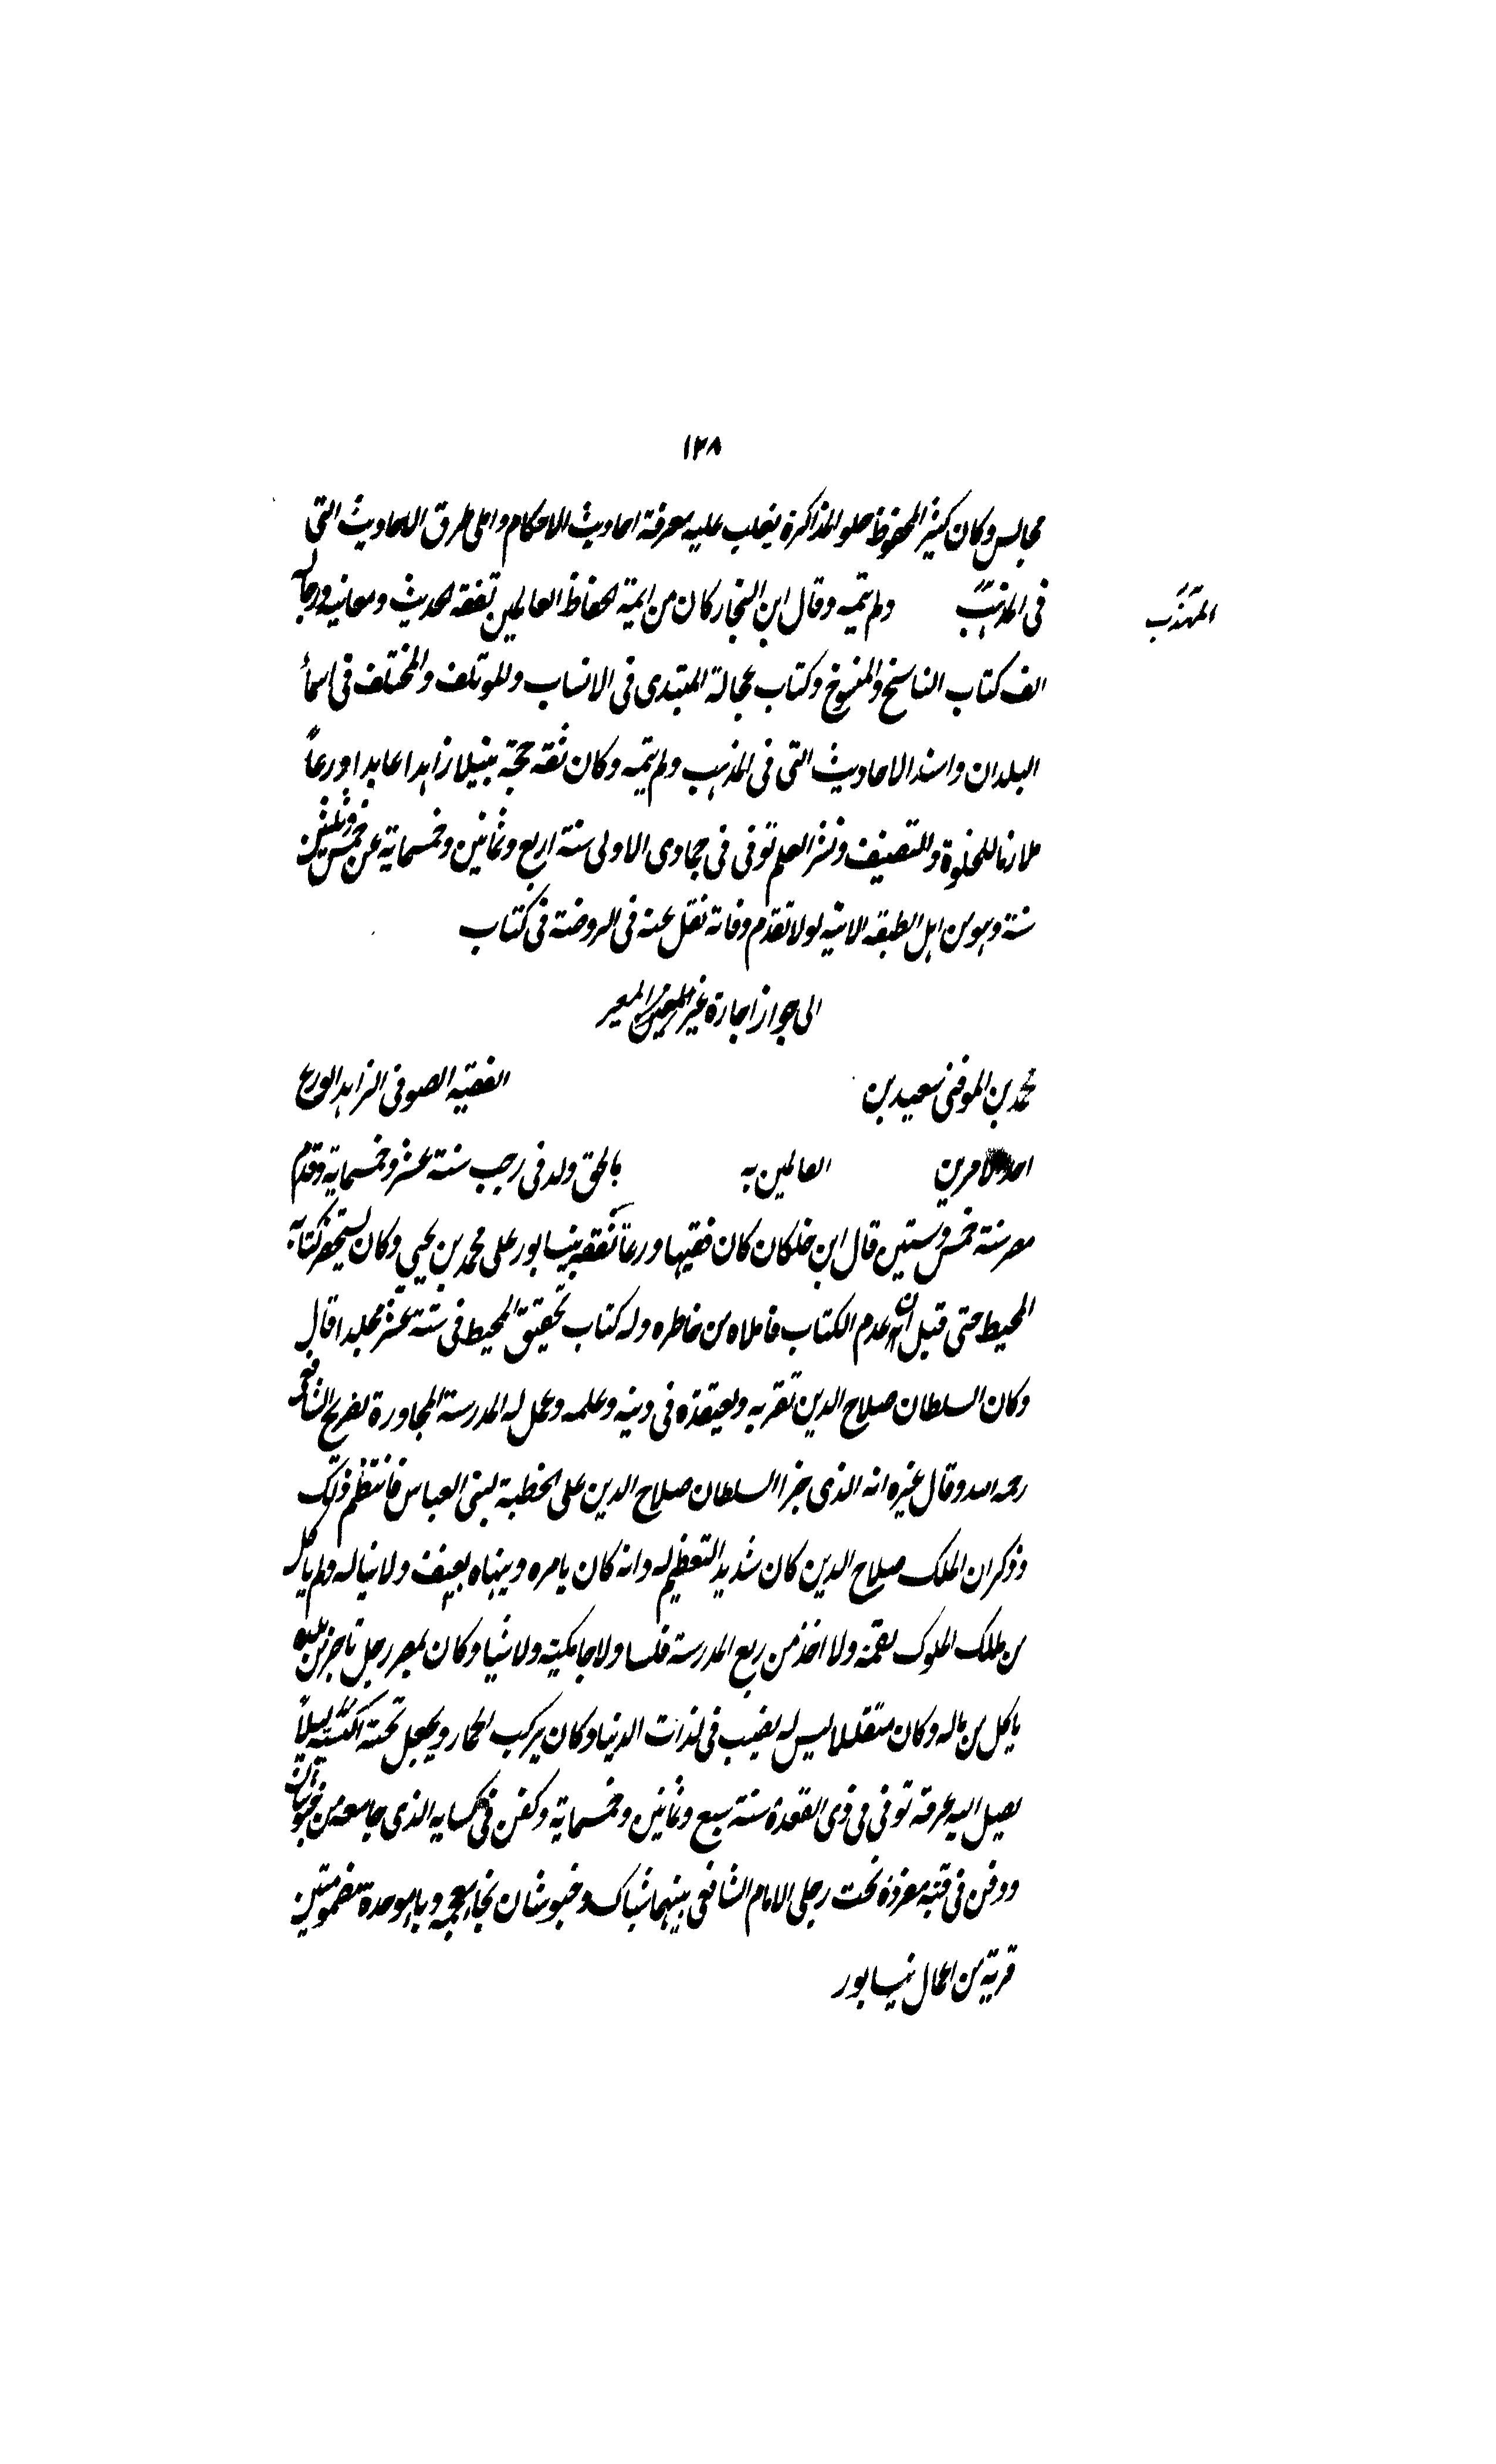 ١٢٨
مجالس وكان كثير المحفوظ حلو المذاكرة يغلب عليه معرفة احاديث الاحكام واملى طرق الاحاديث التى
فى المذهب ولم يتمه وقال ابن النجار كان من ايمة الحفاظ العالمين بفقه الحديث ومعانيه ورجاله
المهذب
الف كتاب الناسخ والمنسوخ وكتاب عجالة المبتدى فى الانساب والموتلف والمختلف فى اسماء
البلدان واسند الاحاديث التى فى المذهب ولم يتمه وكان ثقه حجة نبيلا زاهدا عابدا ورعاً
ملازما للخلوة والتصنيف ونشر العلم توفى فى جمادى الاولى سنة اربع وثمانين وخمسماية عن خمس وثلثين
سنة وهو من اهل الطبقه الاتيه لولا تقدم وفاته نقل عنه فى الروضة فى كتاب
الى جواز اجازة غير المعين المعير
محمد بن الموفق سعيد بن الفقيه الصوفى الزاهد الورع
احد الامرين العالمين به بالحق ولد فى رجب سنة عشر وخمسماية وقدم
مصر سنة خمس وستين قال ابن خلكان كان فقيها ورعاً تفقه بنيسابور على محمد بن يحيى وكان يستحضر كتابه
المحيط حتى قيل انه عدم الكتاب فاملاه من خاطره وله كتاب تحقيق المحيط فى ستة عشر مجلدا قال
وكان السلطان صلاح الدين تقربه ويعتقده فى دينه وعلمه وعمل له المدرسة المجاورة لضريح الشافعى
رحمه الله وقال غيره انه الذى جزا السلطان صلاح الدين على الخطبة لبنى العباس فانتظم ذلك
وذكر ان الملك صلاح الدين كان شديد التعظيم له وانه كان يامره وينهاه بعنف ولا نياله ولم ياكل
من ملك الملوك لقمة ولا اخذ من ريع المدرسة فلسا ولا جامكية ولا شيا وكان بمصر رجل تاجر من بلده
ياكل من ماله وكان متقللا ليس له نصيب فى لذات الدنيا وكان يركب الحمار ويجعل تحته اكسية ليلاً
يصل اليه عرقه توفى فى ذى القعدة سنة سبع وثمانين وخمسماية وكفن فى كسايه الذى جا معه من خبوشان
ودفن فى قبة مفردة تحت رجلى الامام الشافعى بينهما شباك وخبوشان بخا معجمه وبا موحدة مضمومتين
قرية من اعمال نيسابور